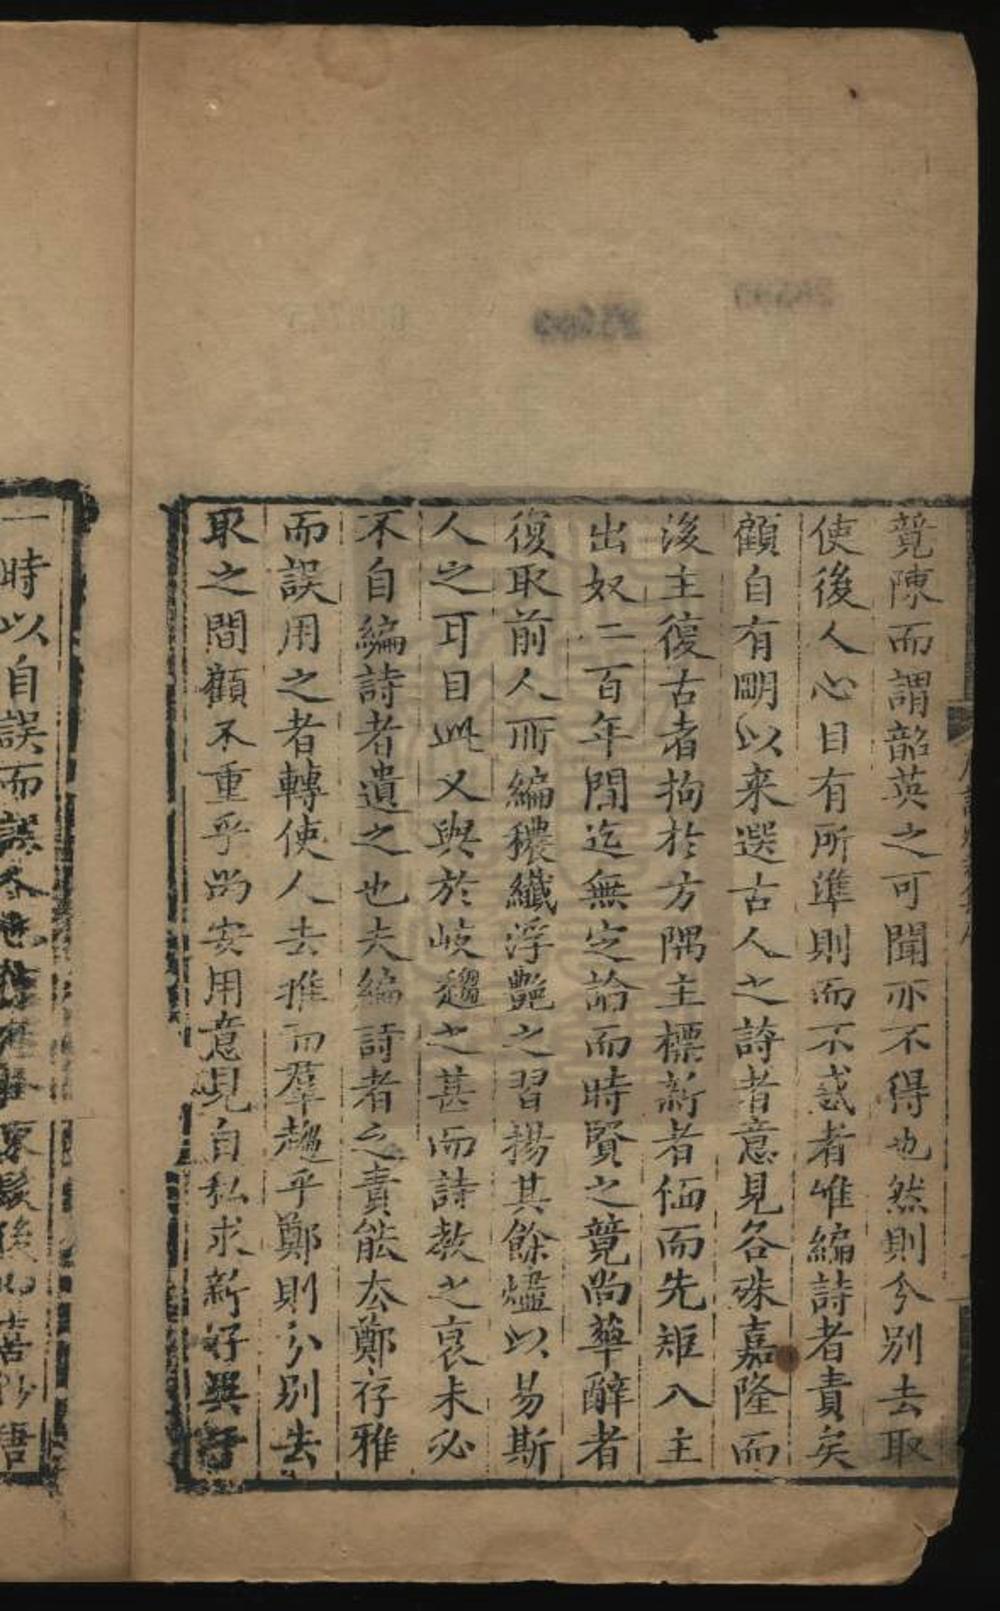 竟陳而謂韶英之可聞亦不得也然則分別去取
使後人心目有所準則而不惑者惟編詩者責矣
顧自有明以来選古人之詩者意見各殊嘉隆而
後主復古者拘於方隅主標新者偭而先矩入主
出奴二百年間迄無定論而時賢之競尚華醉者
復取前人所編穠纖浮艷之習揚其餘燼以易斯
人之耳目此又與於岐趨之甚而詩教之衰未必
不自編詩者遺之也夫編詩者之責能去鄭存雅
而誤用之者轉使人去雅而羣趨乎鄭則分別去
取之間顧不重乎尚安用意見自私求新好異于
一時以自誤而誤